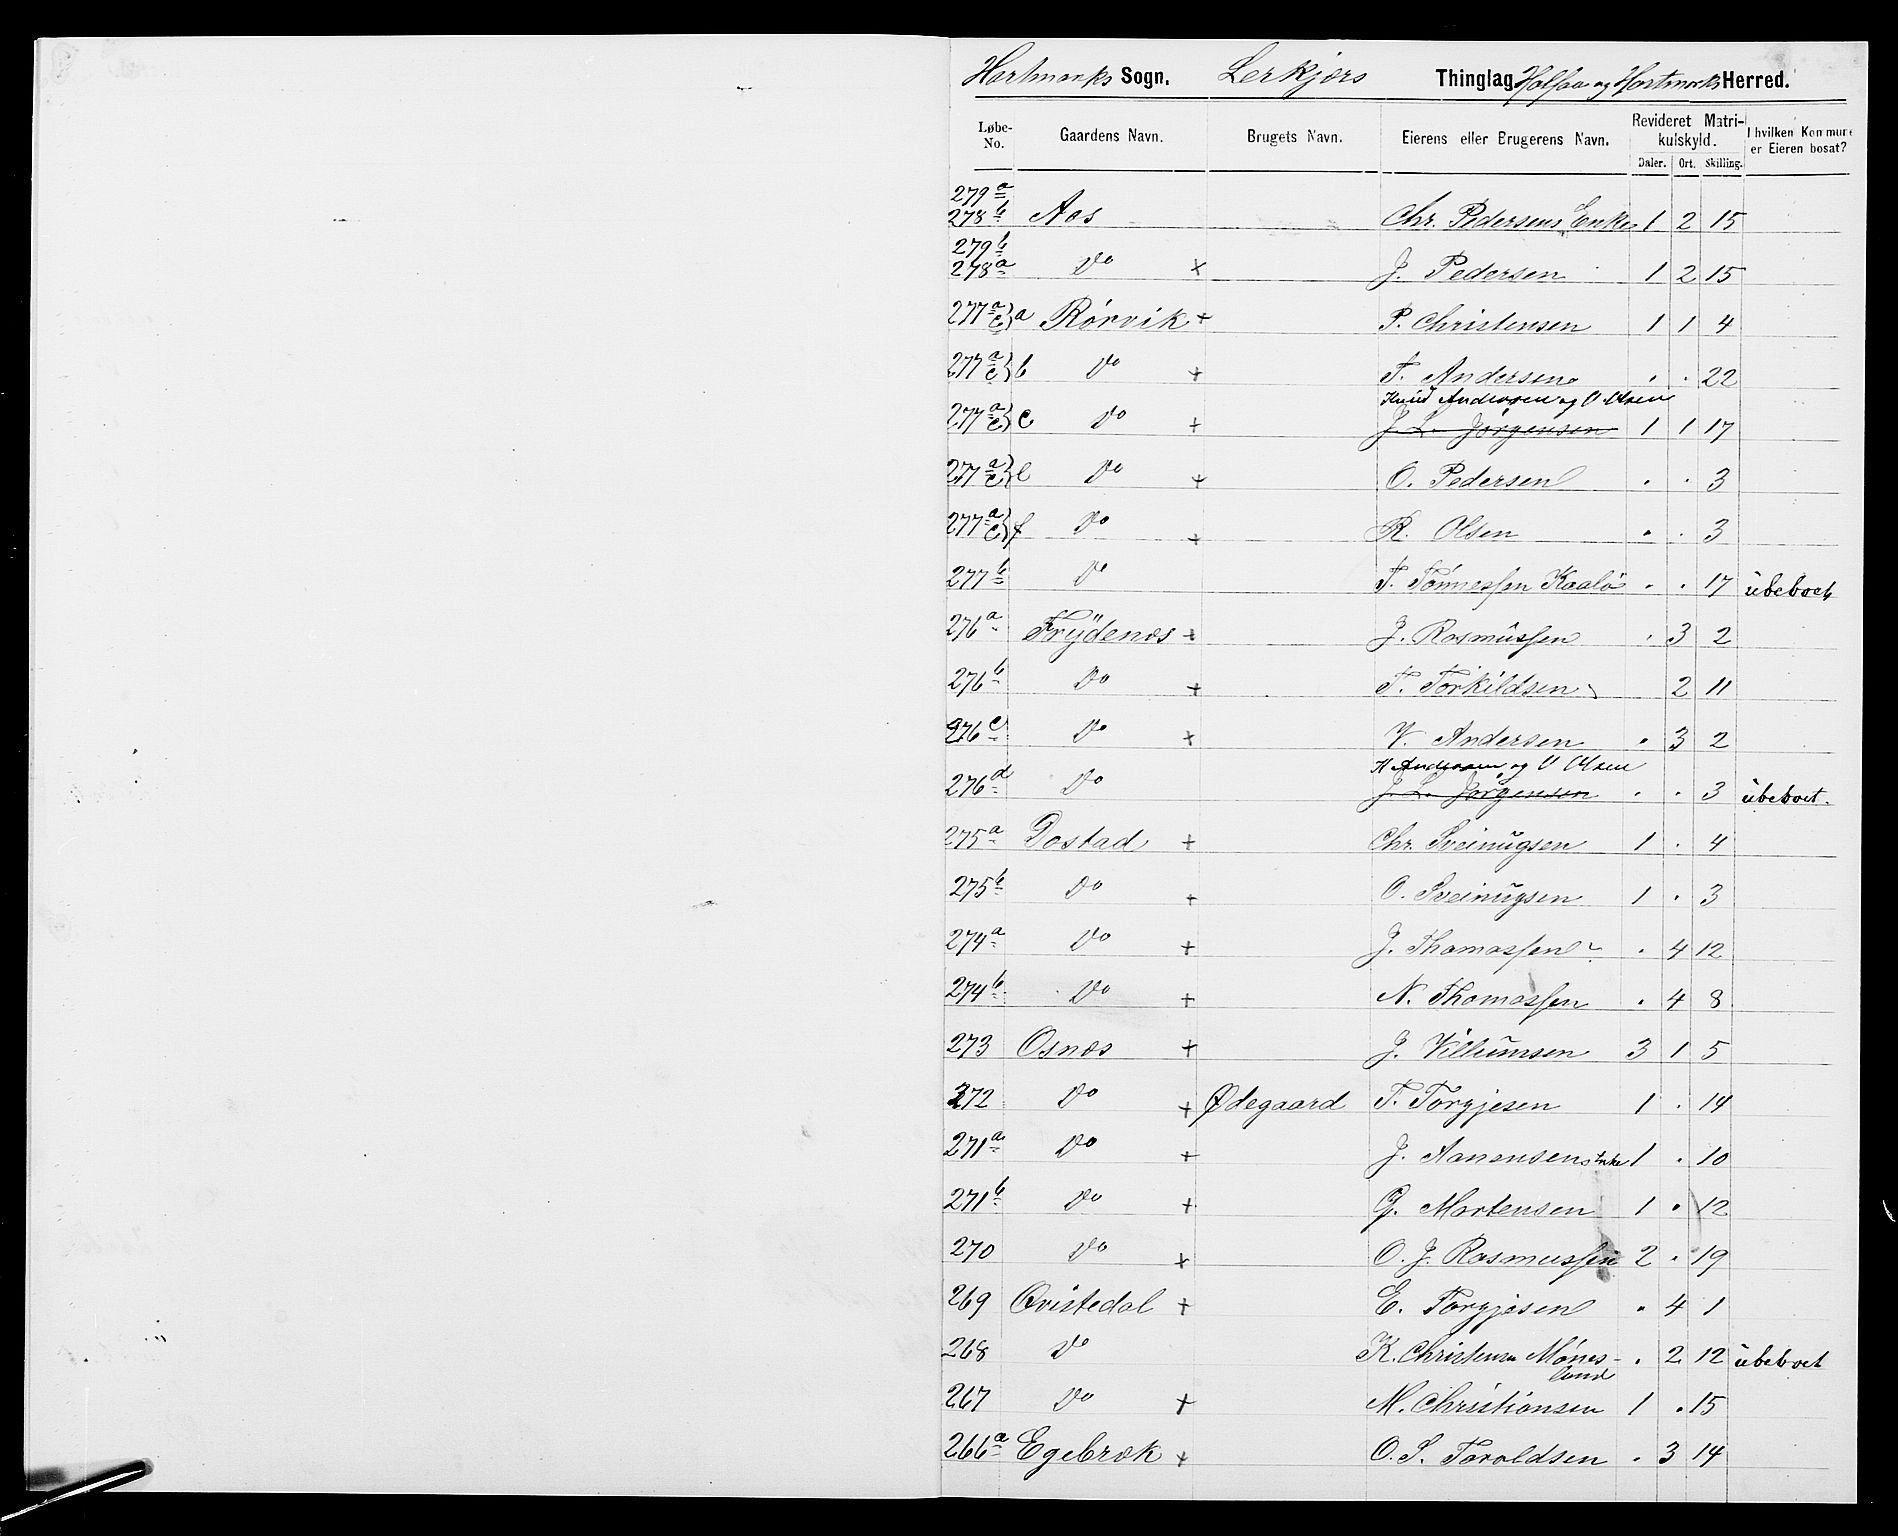 Hartmarks Sogn. Lerkjærs Thinglag Halsaa og Hartmarks Herred.
Løbe-No. Gaardens Navn. Brugets Navn. Eierens eller Brugerens Navn. Revideret Matrikulskyld. Daler. Ort. Skilling. I hvilken Kommune er Eieren bosat?
279a 278b Aas Chr. Pedersens Enke 1 2 15
279b 278a Do + J. Pedersen 1 2 15
277a c) a Rørvik + P. Christensen 1 1 4
277a c) b Do + T. Andersen . . 22
Knud Andersen og O Olsen
277a c) c Do + J. L. Jørgensen 1 1 17
277a c) e Do + O. Pedersen . . 3
277a c) f Do + R. Olsen . . 3
277b Do T. Tønnessen Kaalø . . 17 ubeboet
276a Frydenæs + J. Rasmussen . 3 2
276b Do + T. Torkildsen 2 11
276c Do + V. Andersen . 3 2
K Andersen og O Olsen
276d Do J. L. Jørgensen . . 3 ubeboet.
275a Dostad + Chr. Sveinugsen 1 . 4
275b Do + O. Sveinugsen 1 . 3
274a Do + J. Thomassen . 4 12
274b Do + N. Thomassen . 4 8
273 Osnæs + J. Villumsen 3 1 5
272 Do + Ødegaard T. Torgjesen 1 . 14
271a Do + J. Aanensens Enke 1 . 10
271b Do + G. Mortensen 1 . 12
270 Do + O. J. Rasmussen 2 . 19
269 Qvistedal + E. Torgjesen . 4 1
268 Do K. Christensen Mønes- . 2 12 ubeboet
land
267 Do + M. Christiansen 1 . 15
266a Egebræk + O. S. Taraldsen . 3 14